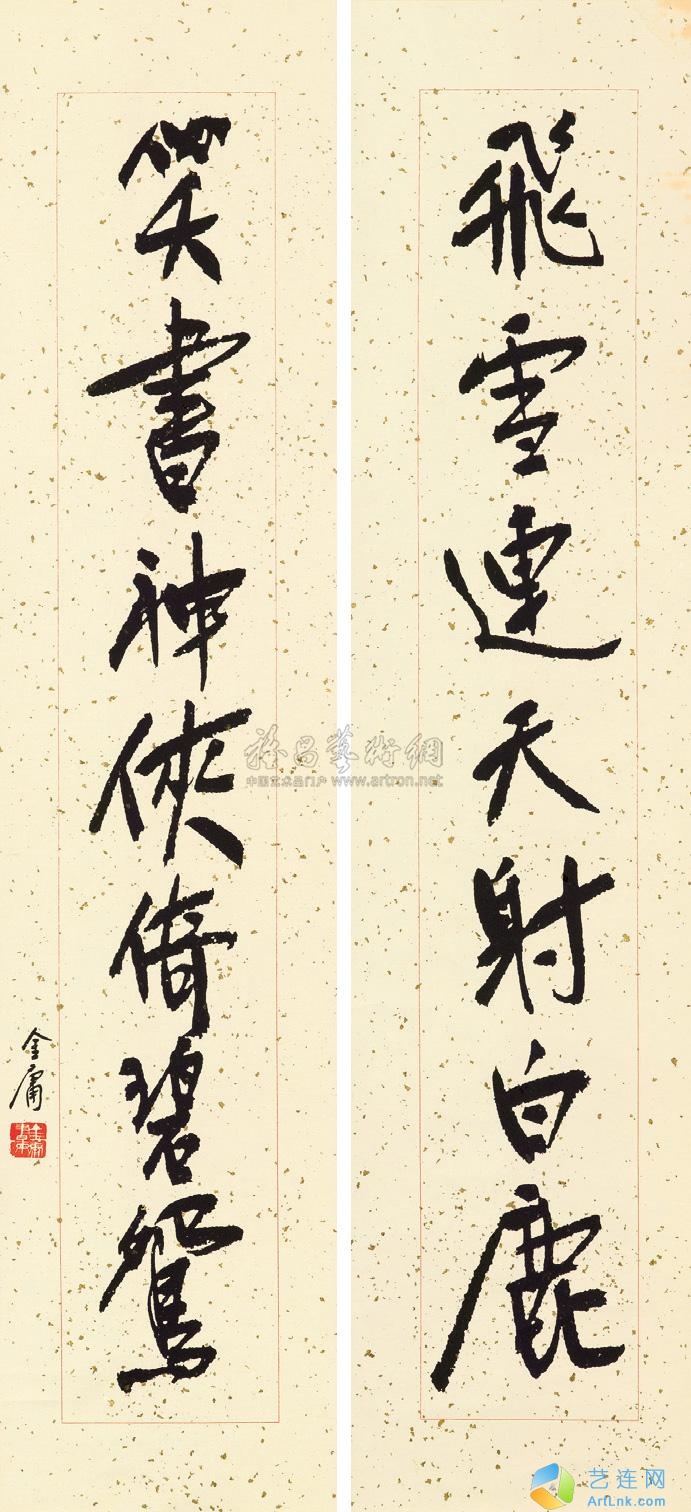 飛雪連天射白鹿
笑書神俠倚碧鴛
金庸
雅昌藝術網
中国艺术品门户 www.artron.net
艺连网
ArtLnk.com